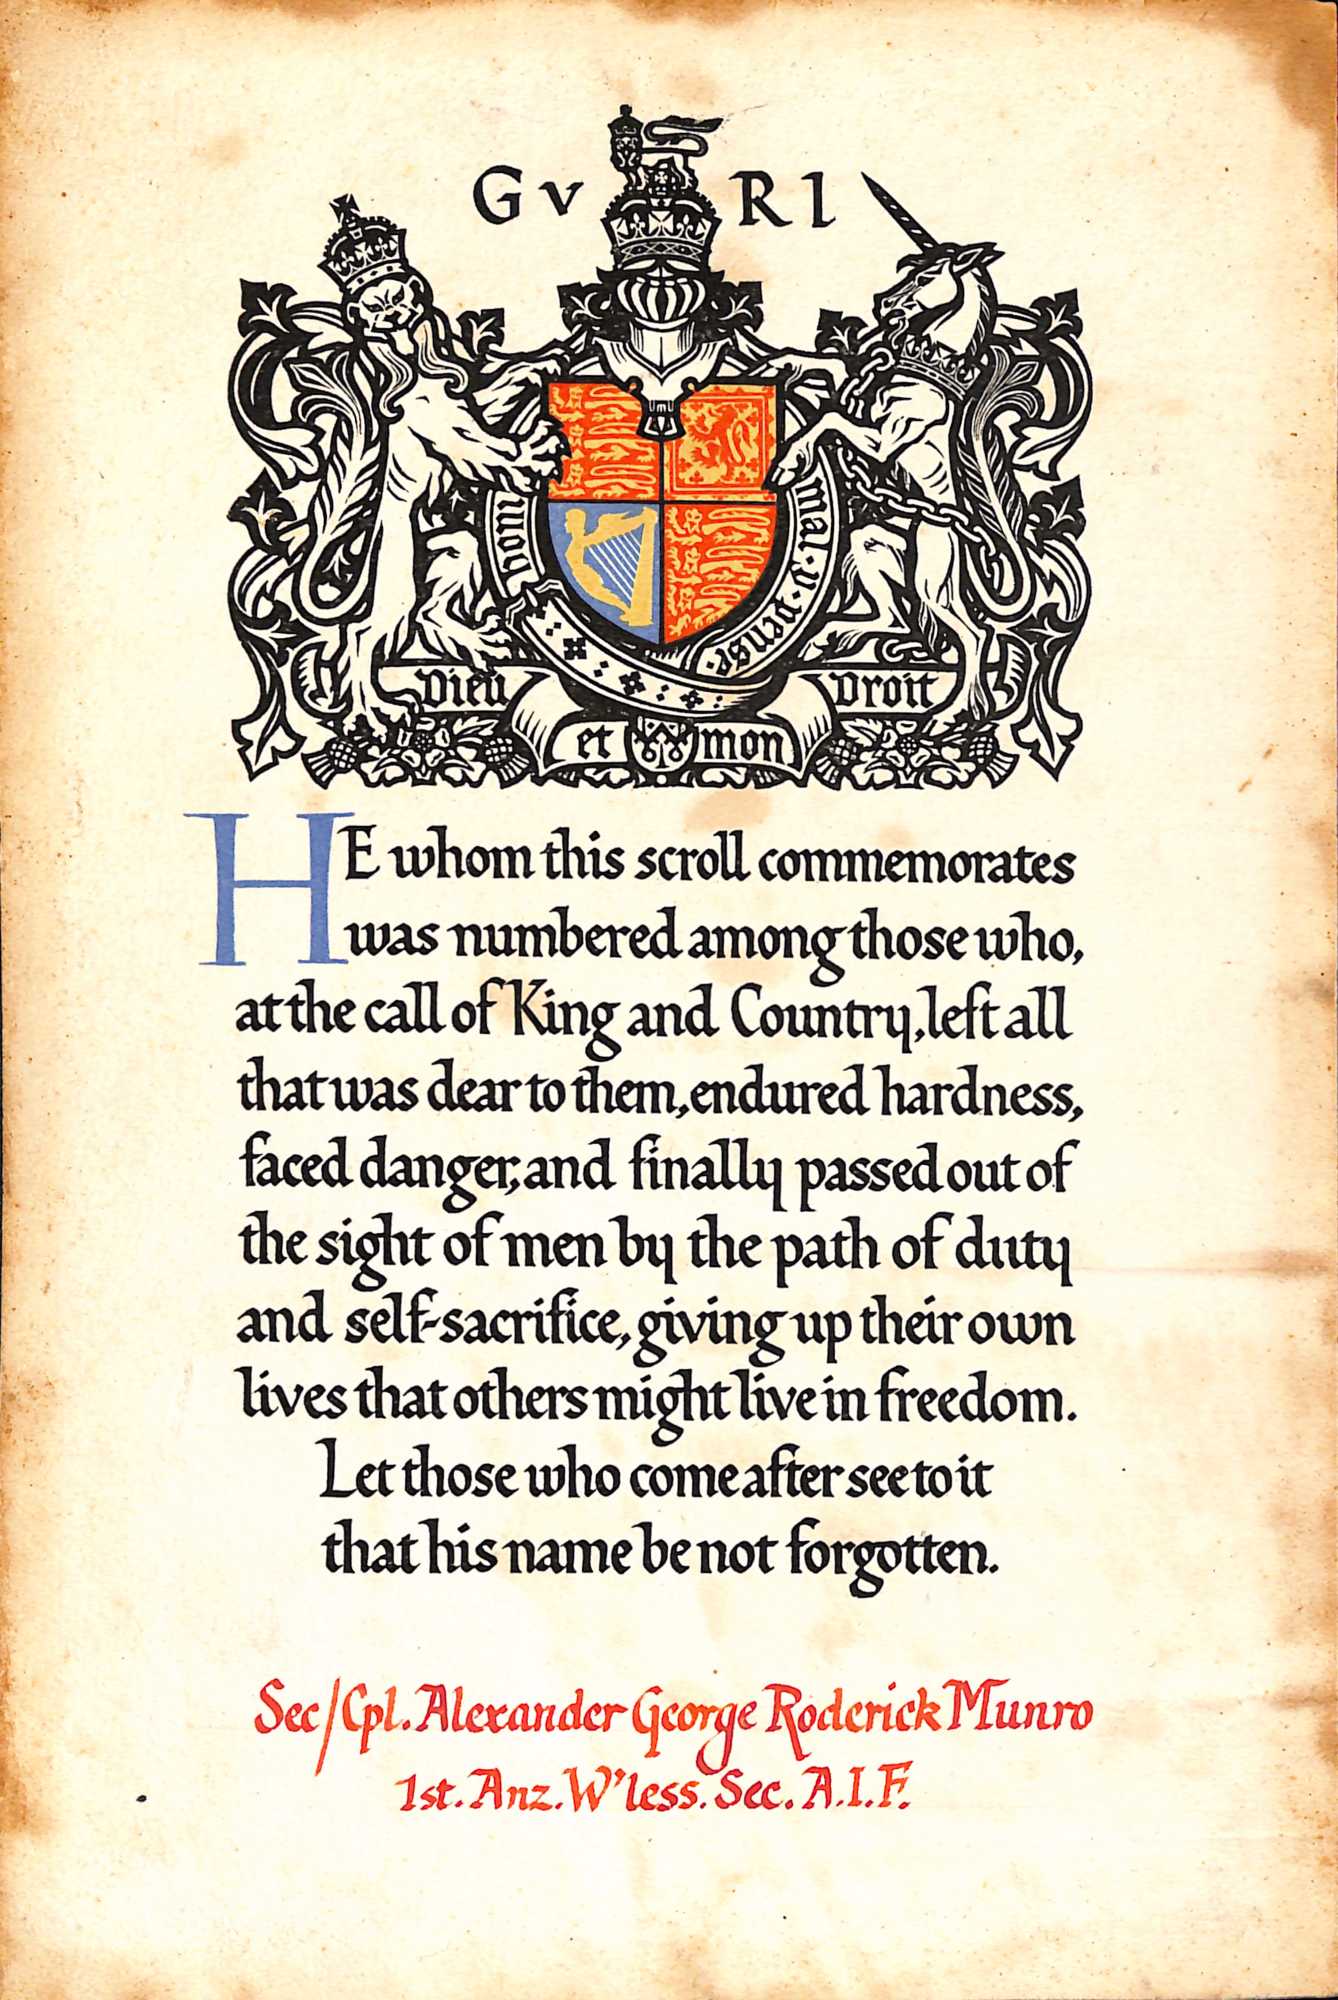 GV RI
honi
mal·y·pense·
Dieu
et mon
Droit
HE whom this scroll commemorates
was numbered among those who,
at the call of King and Country, left all
that was dear to them, endured hardness,
faced danger, and finally passed out of
the sight of men by the path of duty
and self-sacrifice, giving up their own
lives that others might live in freedom.
Let those who come after see to it
that his name be not forgotten.
Sec/Cpl. Alexander George Roderick Munro
1st. Anz. W'less. Sec. A.I.F.